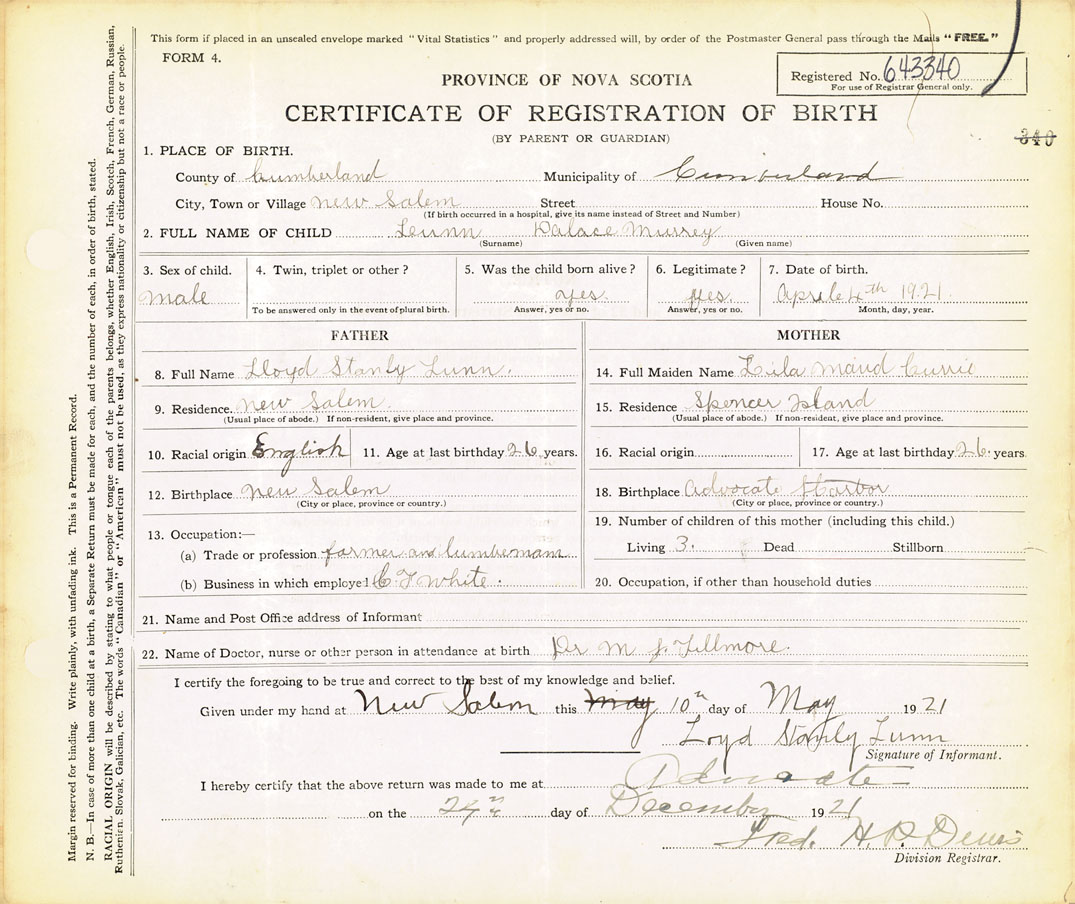 This form if placed in an unsealed envelope marked "Vital Statistics" and properly addressed will, by order of the Postmaster General pass through the Mails "FREE."
FORM 4.
Registered No. 643340
For use of Registrar General only.
PROVINCE OF NOVA SCOTIA
CERTIFICATE OF REGISTRATION OF BIRTH
(BY PARENT OR GUARDIAN)
340
1. PLACE OF BIRTH.
County of Cumberland Municipality of Cumberland
City, Town or Village New Salem Street House No.
(If birth occurred in a hospital, give its name instead of Street and Number)
2. FULL NAME OF CHILD Murrey
(Surname) (Given name)
3. Sex of child. 4. Twin, triplet or other? 5. Was the child born alive? 6. Legitimate? 7. Date of birth.
Male yes. yes. Aprile 4th 1921
To be answered only in the event of plural birth. Answer, yes or no. Answer, yes or no. Month, day, year.
FATHER
8. Full Name Lloyd Stanly Lunn.
9. Residence. New Salem
(Usual place of abode.) If non-resident, give place and province.
10. Racial origin English 11. Age at last birthday 26 years.
12. Birthplace New Salem
(City or place, province or country.)
13. Occupation:—
(a) Trade or profession farmer and lumbermann
(b) Business in which employed C T White.
MOTHER
14. Full Maiden Name Lila Maud Currie
15. Residence Spencer Island
(Usual place of abode.) If non-resident, give place and province.
16. Racial origin 17. Age at last birthday 26. years
18. Birthplace Advocate Harbor
(City or place, province or country.)
19. Number of children of this mother (including this child.)
Living 3. Dead Stillborn
20. Occupation, if other than household duties
21. Name and Post Office address of Informant
22. Name of Doctor, nurse or other person in attendance at birth Dr M J Fillmore.
I certify the foregoing to be true and correct to the best of my knowledge and belief.
Given under my hand at New Salem this May 10th day of May 1921
Loyd Stanly Lunn
Signature of Informant.
I hereby certify that the above return was made to me at Advocate
on the 24th day of December 1921
Fred. H.
Division Registrar.
Margin reserved for binding. Write plainly, with unfading ink. This is a Permanent Record.
N. B.—In case of more than one child at a birth, a Separate Return must be made for each, and the number of each, in order of birth, stated.
RACIAL ORIGIN will be described by stating to what people or tongue each of the parents belongs, whether English, Irish, Scotch, French, German, Russian,
Ruthenian, Slovak, Galician, etc. The words "Canadian" or "American" must not be used, as they express nationality or citizenship but not a race or people.